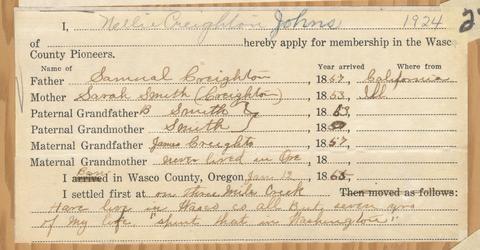 I, Nellie Creighton Johns 1924 2
of hereby apply for membership in the Wasco
County Pioneers.
Name of Year arrived Where from
Father Samual Creighton 1857. California
Mother Sarah Smith (Creighton) 1853, Ill
Paternal Grandfather B Smith 1853,
Paternal Grandmother Smith 18
Maternal Grandfather James Creighto 1857.
Maternal Grandmother never lived in Ore 18
Born
I arrived in Wasco County, Oregon Jan 12 1865.
I settled first at on Three Mile Creek Then moved as follows:
Have live in Wasco co all But seven yrs
of My life "spent that in Washington"